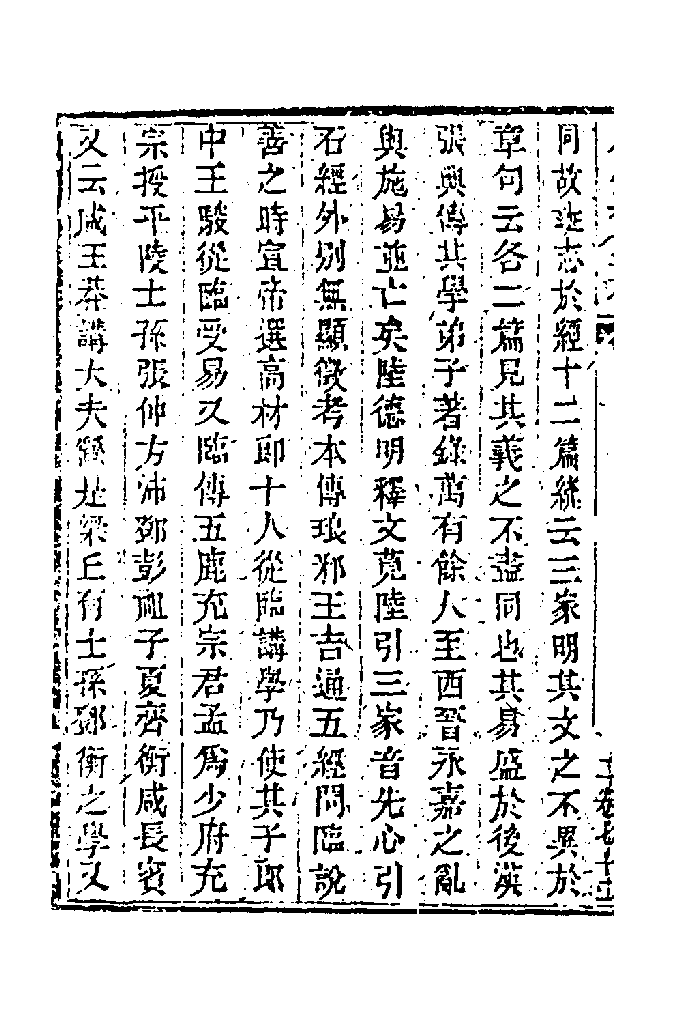 同故班志於經十二篇緫云三家明其文之不異於
章句云各二篇見其義之不盡同也其易盛於後漢
張興傳其學弟子著錄萬有餘人至西晋永嘉之亂
與施易並亡矣陸德明釋文莧陸引三家音先心引
石經外别無顯徵考本傳琅邪王吉通五經問臨說
善之時宣帝選高材郎十人從臨講學乃使其子郎
中王駿從臨受易又臨傳五鹿充宗君孟爲少府充
宗授平陵士孫張仲方沛鄧彭祖子夏齊衡咸長賓
又云咸王莽講大夫繇是梁丘有士孫鄧衡之學又